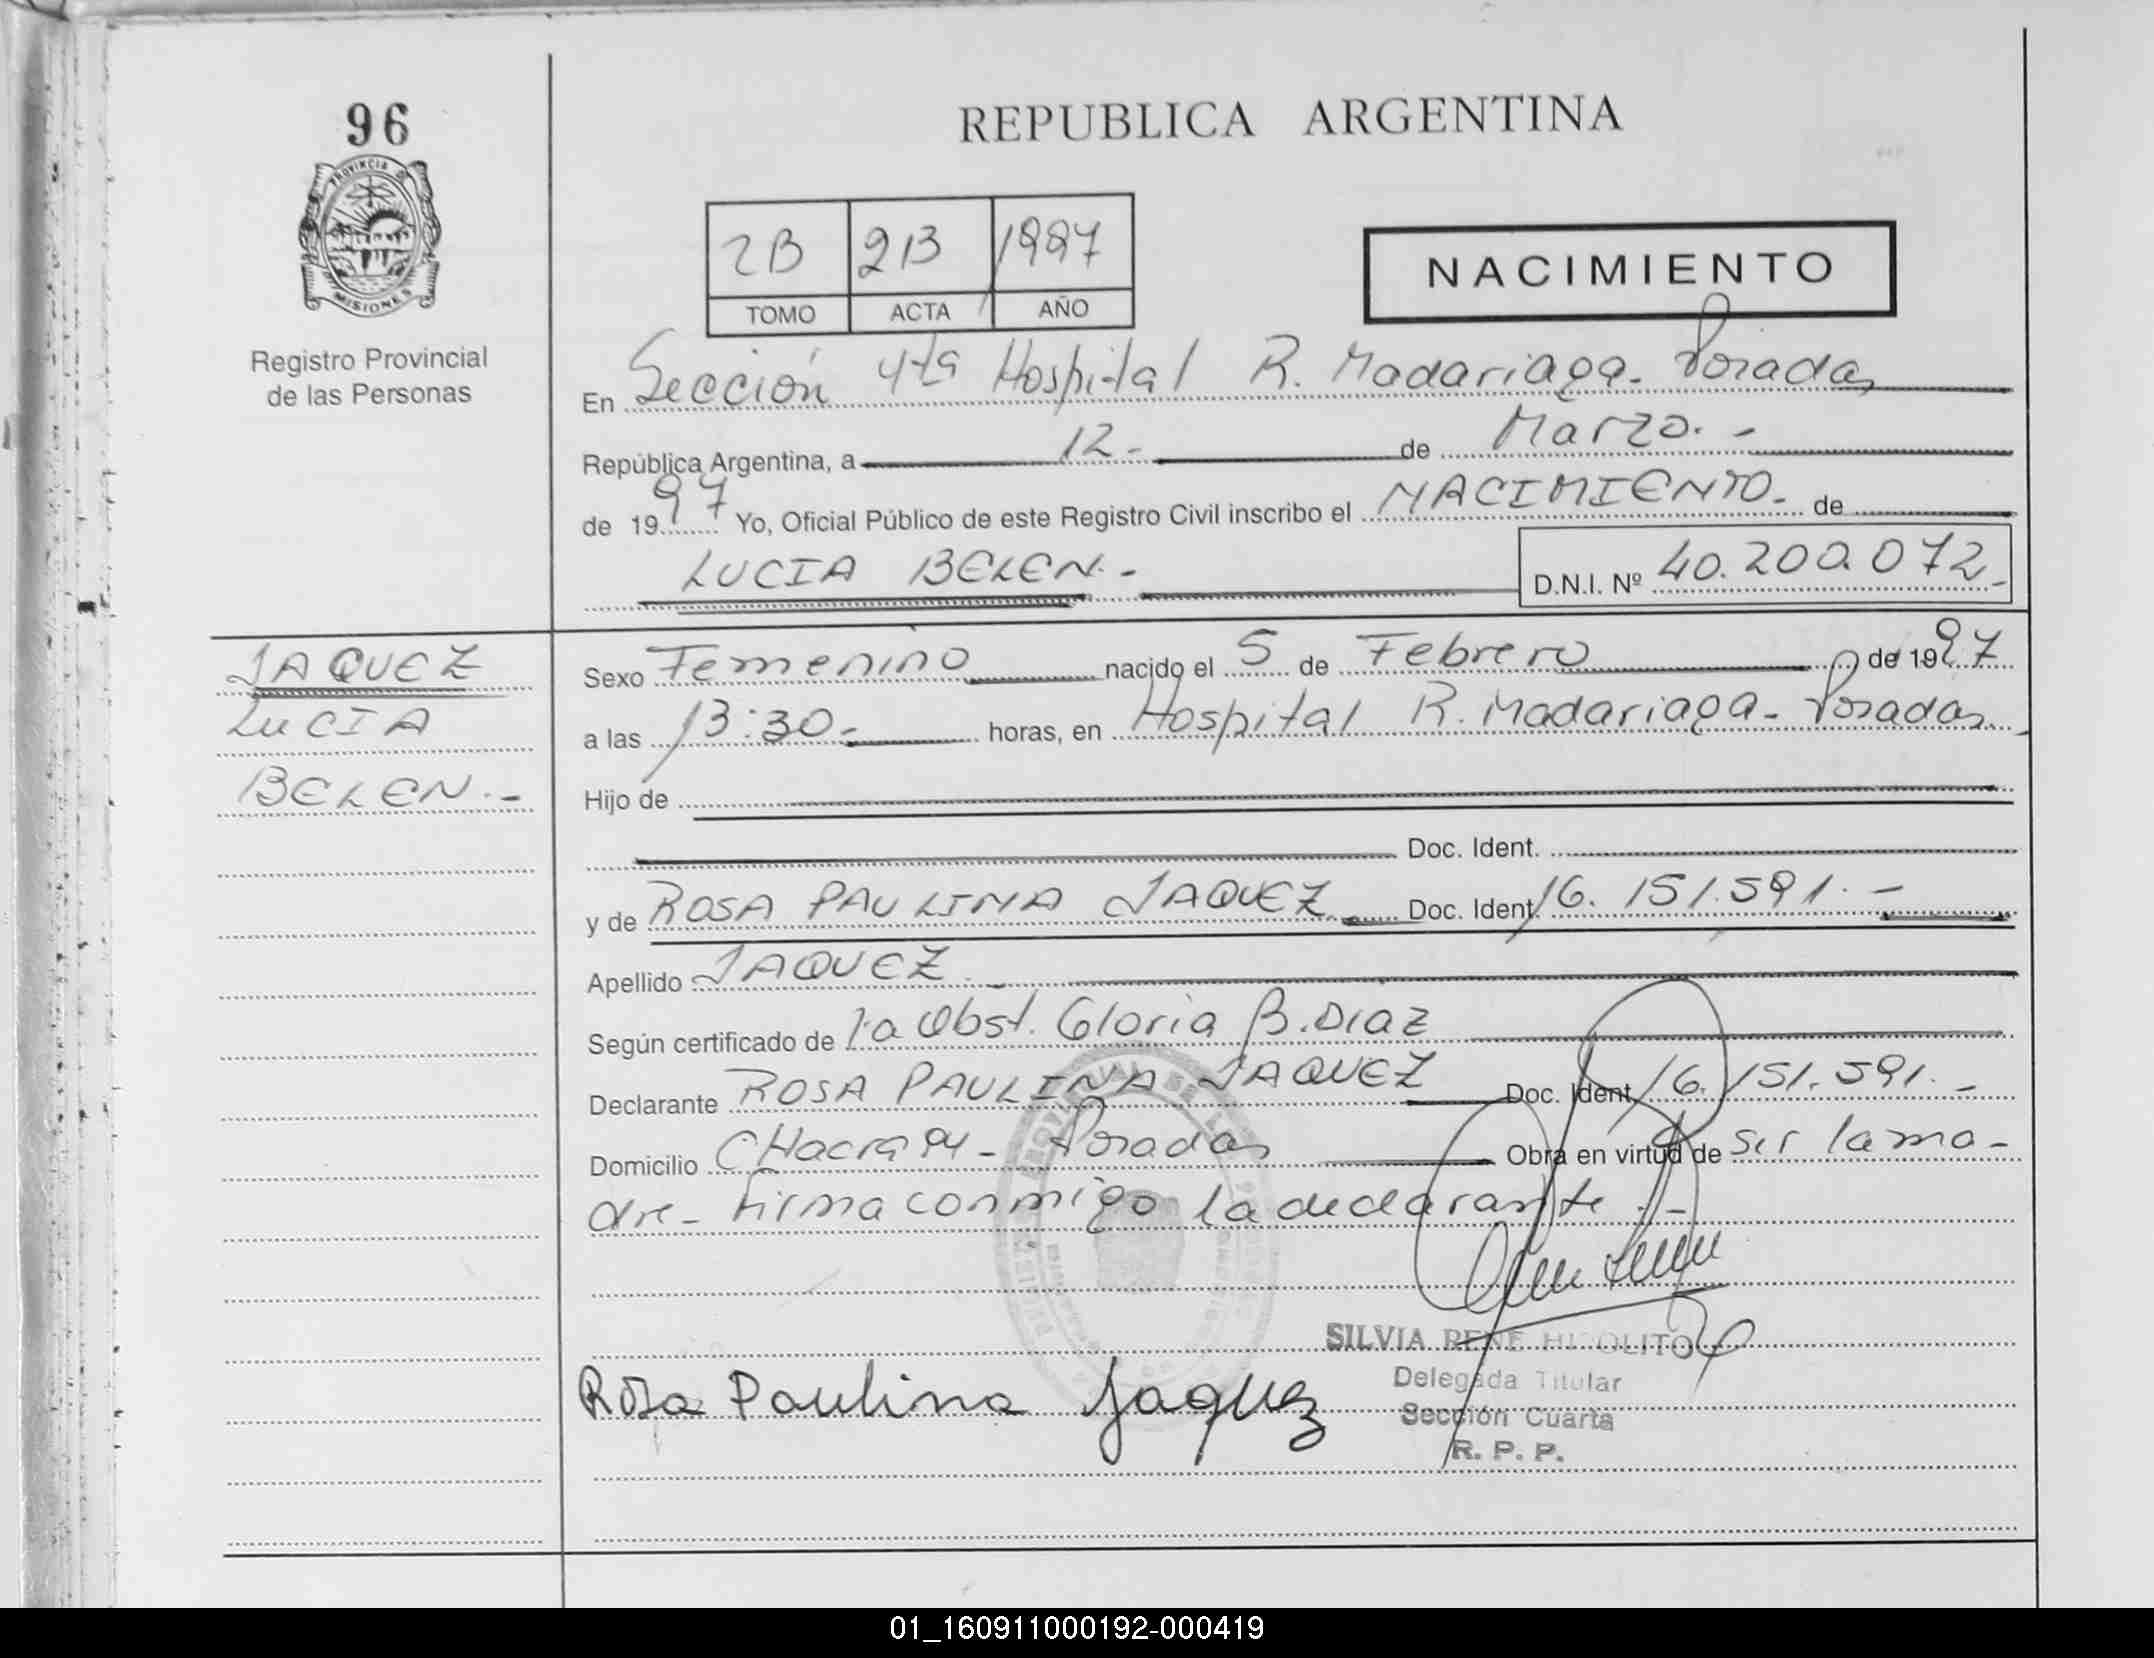 96
PROVINCIA DE
MISIONES
Registro Provincial
de las Personas
REPUBLICA ARGENTINA
2B 213 1997
TOMO ACTA AÑO
NACIMIENTO
En Sección 4ta Hospital R. Madariaga - Posadas
República Argentina, a 12.- de Marzo. -
de 1997 Yo, Oficial Público de este Registro Civil inscribo el NACIMIENTO.- de
LUCIA BELEN.- D.N.I. Nº 40.200.072.-
JAQUEZ
LUCIA
BELEN.-
Sexo Femenino nacido el 5 de Febrero de 1997
a las 13:30.- horas, en Hospital R. Madariaga - Posadas
Hijo de
Doc. Ident.
y de ROSA PAULINA JAQUEZ Doc. Ident. 16.151.591.-
Apellido JAQUEZ
Según certificado de la Obst. Gloria B. Diaz
Declarante ROSA PAULINA JAQUEZ Doc. Ident. 16.151.591.-
Domicilio CHacra - Posadas Obra en virtud de ser la ma-
dre - firma conmigo la declarante.-
SILVIA RENE HIPOLITO
Delegada Titular
Sección Cuarta
R. P. P.
Rosa Paulina Jaquez
01_160911000192-000419